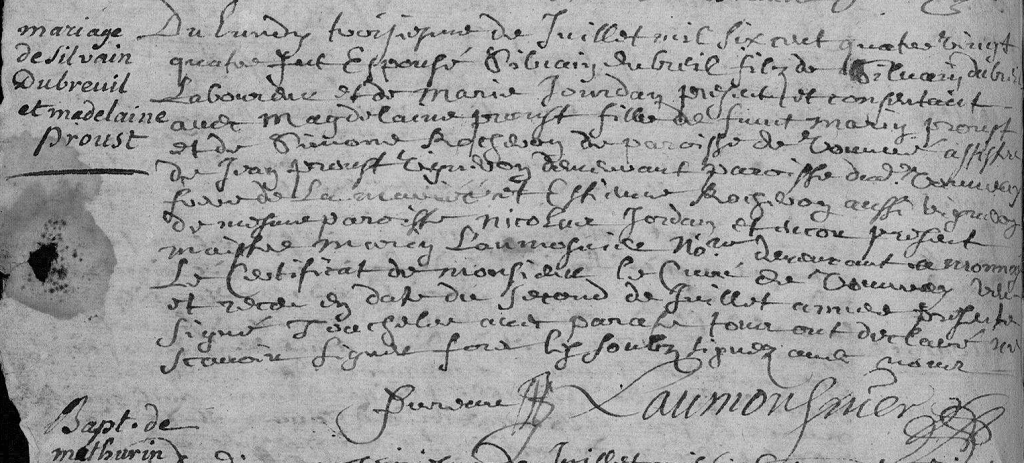 mariage
de silvain
Dubreuil
et madelaine
Proust
Du Lundy troisiesme de Juillet mil six cent quatre vingt
quatre fut Espousé Silvain dubreil filz de Silvain dubreil
Laboureur et de Marie Jourdan present et consentant
avec Magdelaine proust fille de funt Marin proust
et de Simone Rochevon de paroisse de Vouvré assisté
de Jean proust vigneron demeurant paroisse dud. Vouvray
frere de La mariée et Estienne Rochevon aussi vigneron
de mesme paroisse Nicolas Jordan et encor present
maistre Marin Laumosnier No.re demeurant a monnay
Le Certificat de monsieur le Curé de Vouvray veu
et receu en date du second de Juillet année presente
signé avec parafe tous ont declaré ne
scavoir signer fors les soubz signez avec nous
Laumosnier
Bapt. de
mathurin
Juillet